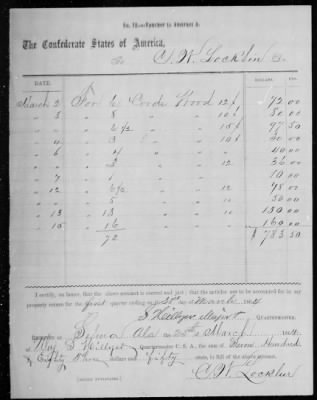 No. 12.—Voucher to Abstract A.
The Confederate States of America,
To C. W. Locklin Dr.
DATE. DOLLARS. CTS.
March 2 For 6 Cords Wood 12$ 72 00
" 3 " 5 " " 10$ 50 00
" " " 6 1/2 " " 15$ 97 50
" 4 " " " 10$ 00
" 6 " 4 " " " 40 00
" " " 3 " " 12 36 00
" 7 " 1 " " 10 00
" 12 " 6 1/2 " " 12 00
" " " 5 " " 50 00
" 13 " 13 " " 130 00
" 15 " 16 " " 160 00
72 $ 783.50
I certify, on honor, that the above account is correct and just; that the articles are to be accounted for in my
property return for the first quarter ending on 31st March 1864
Major QUARTERMASTER.
RECEIVED at Selma Ala on 25th March 1864
of Maj Quartermaster C. S. A., the sum of Seven Hundred
& Eighty Three dollars and fifty cents, in full of the above account.
[SIGNED DUPLICATES.] C. W. Locklin